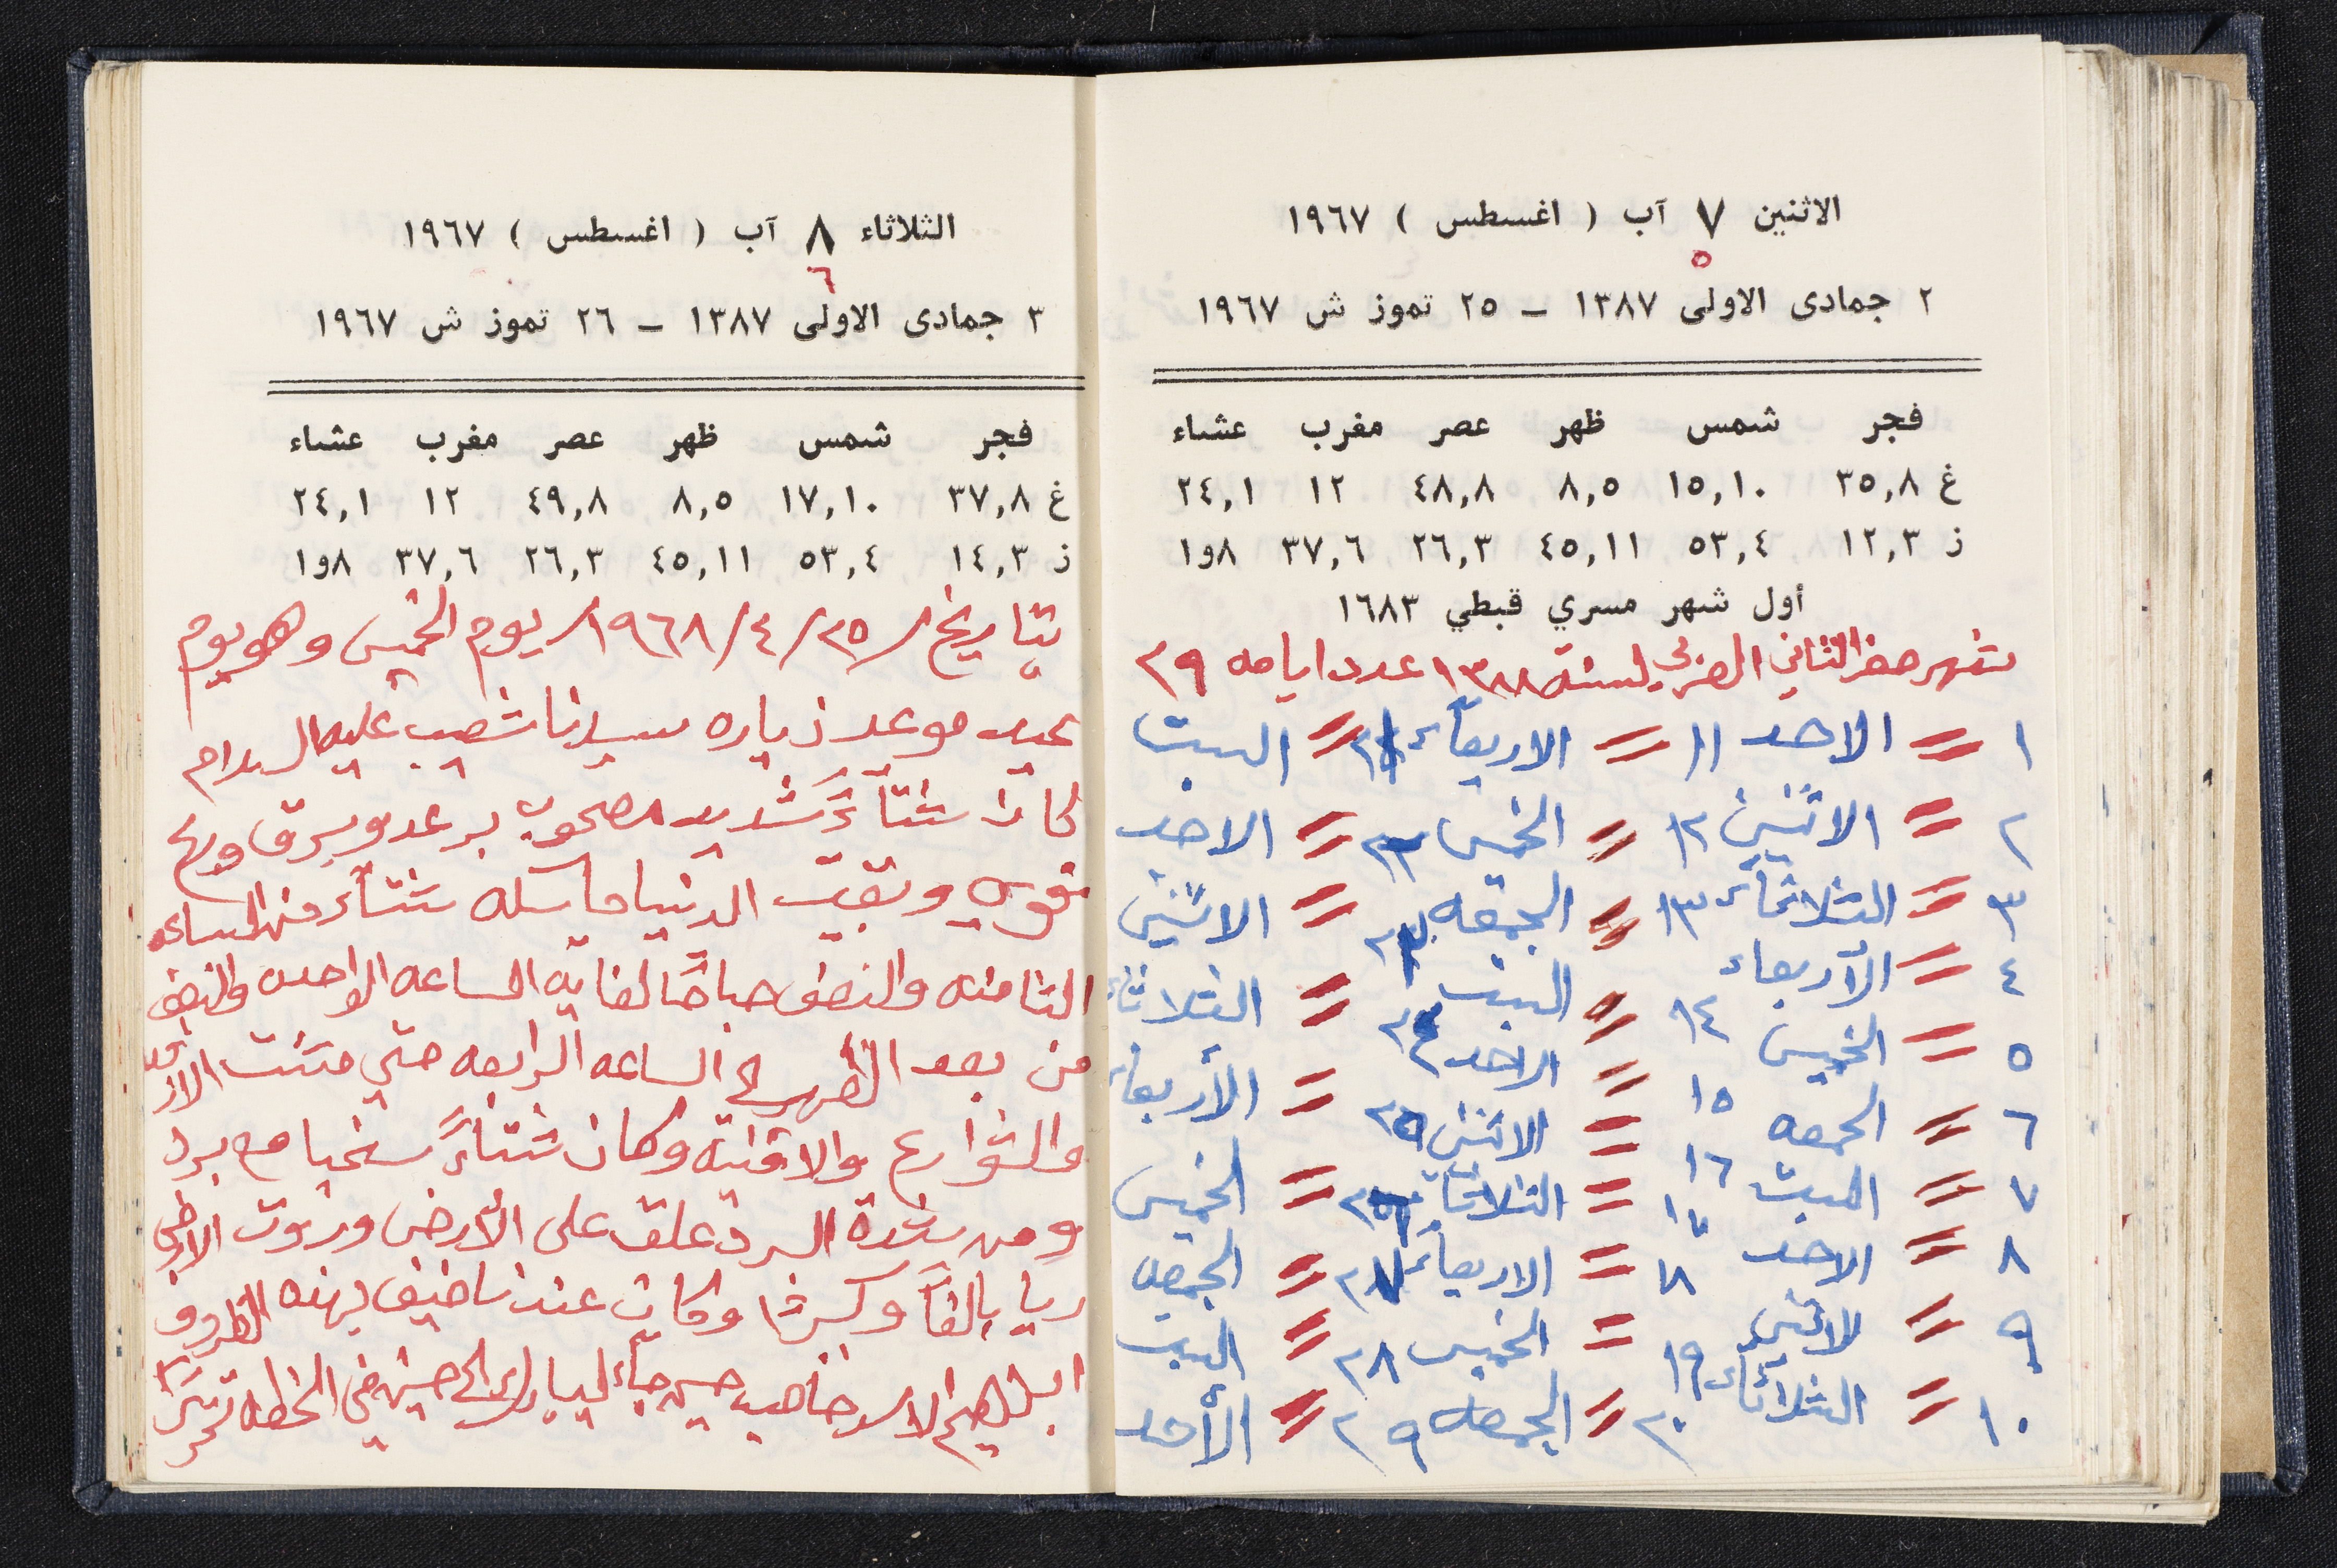 الاثنين ٧ آب ( اغسطس ) ١٩٦٧
٥
٢ جمادى الاولى ١٣٨٧ – ٢٥ تموز ش ١٩٦٧
فجر شمس ظهر عصر مغرب عشاء
غ ٣٥,٨ ١٥,١٠ ٨,٥ ٤٨,٨ ١٢ ٢٤,١
ز ١٢,٣ ٥٣,٤ ٤٥,١١ ٢٦,٣ ٣٧,٦ ٨و١
أول شهر مسري قبطي ١٦٨٣
شهر صفر الثاني العربي لسنة ١٣٨٨ عدد ايامه ٢٩
١ = الاحد ١١ = الاربعآء ٢١ = السبت
٢ = الاثنين ١٢ = الخميس ٢٢ = الاحد
٣ = الثلاثآء ١٣ = الجمعه ٢٣ = الاثنين
٤ = الآربعاء ١٤ = السبت ٢٤ = الثلاثاء
٥ = الخميس ١٥ = الاحد ٢٥ = الأربعاء
٦ = الجمعه ١٦ = الاثنين ٢٦ = الخميس
٧ = السبت ١٧ = الثلاثآء ٢٧ = الجمعه
٨ = الاحد ١٨ = الاربعآء ٢٨ = السبت
٩ = لاثنين ١٩ = الخميس ٢٩ = الأحد
١٠ = الثلاثآء ٢٠ = الجمعه
الثلاثاء ٨ آب ( اغسطس ) ١٩٦٧
٦
٣ جمادى الاولى ١٣٨٧ – ٢٦ تموز ش ١٩٦٧
فجر شمس ظهر عصر مغرب عشاء
غ ٣٧,٨ ١٧,١٠ ٨,٥ ٤٩,٨ ١٢ ٢٤,١
ز ١٤,٣ ٥٣,٤ ٤٥,١١ ٢٦,٣ ٣٧,٦ ٨و١
بتاريخ / ٢٥ / ٤ / ١٩٦٨ / يوم الخميس وهو يوم
عيد موعد زياره سيدنا شعيب عليه السلام
كان شتآءً شديد مصحوب برعد وبرق وريح
قوي وبقيت الدنيا ماسكه شتآء من الساعه
الثامنه والنصف صباحًا لغاية الساعه الواحده والنصف
من بعد الظهر الساعه الرابعه حتي
والشوارع والاقنيه وكان شتاءً سخيا مع برد
ومن شدة البرد علق على الأرض وروت الاراضي
ريا بالغآ وكسرها وكان عندنا ضيف بهذه الظروف
ابراهيم الاسد جآء ليبارك الى حسين في الخطبه